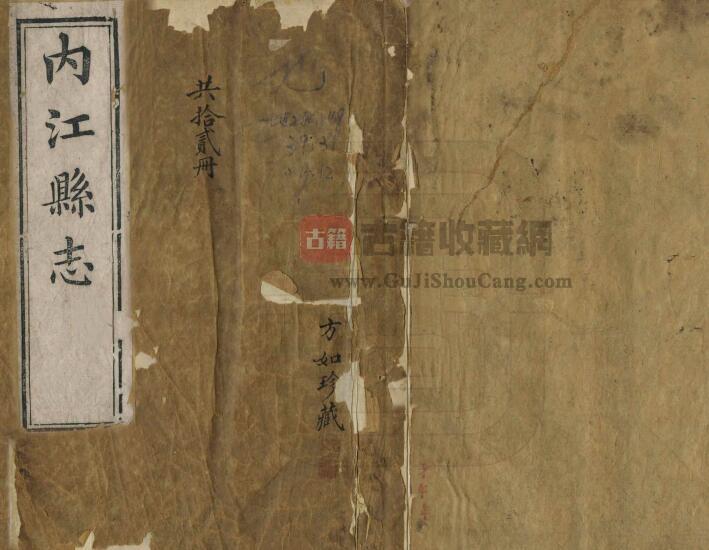 内江縣志
共拾貳冊
方如珍藏
古籍
古籍收藏網
www.GuJiShouCang.com